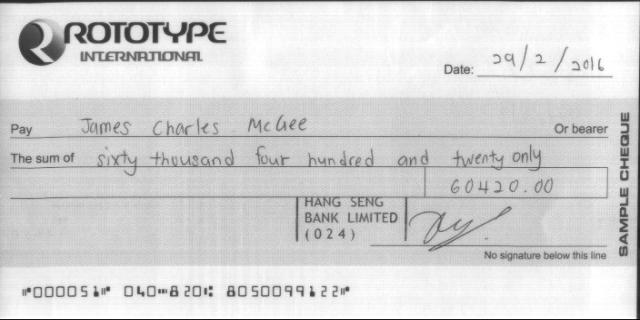 ROTOTYPE
INTERNATIONAL
Date: 29/2/2016
Pay James Charles McGee Or bearer
The sum of sixty thousand four hundred and twenty only
60420.00
HANG SENG
BANK LIMITED
(024)
No signature below this line
SAMPLE CHEQUE
⑈000051⑈ 040⑉820⑆ 8050099122⑈